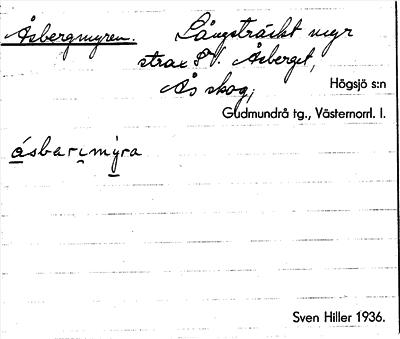 Åsbergmyren. Långsträckt myr
strax SV. Åsberget,
Ås skog;
Högsjö s:n
Gudmundrå tg., Västernorrl. l.
ásbarımỳra
Sven Hiller 1936.